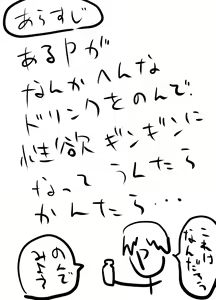 あらすじ
あるPが
なんかへんな
ドリンクをのんで
性欲ギンギンに
なって うんたら
かんたら・・・
これは
なんだろう
P
のんで
みよう